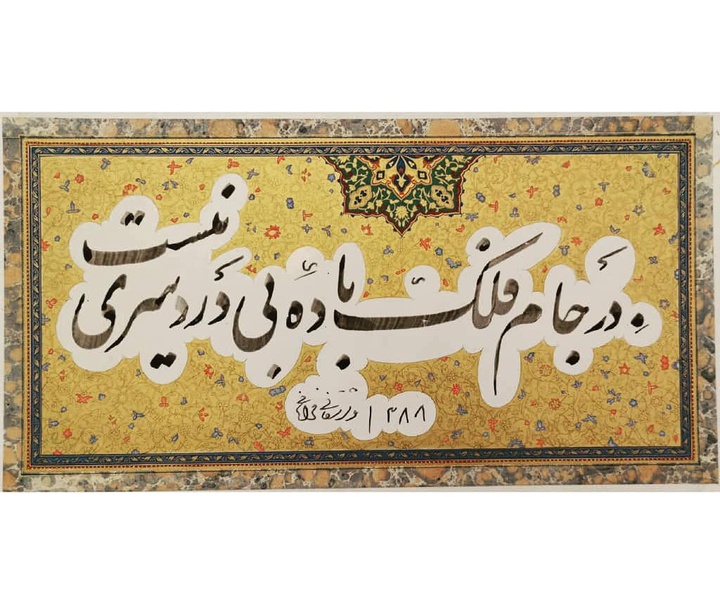 در جام فلک بادهٔ بی دردسری نیست
۱۳۸۸